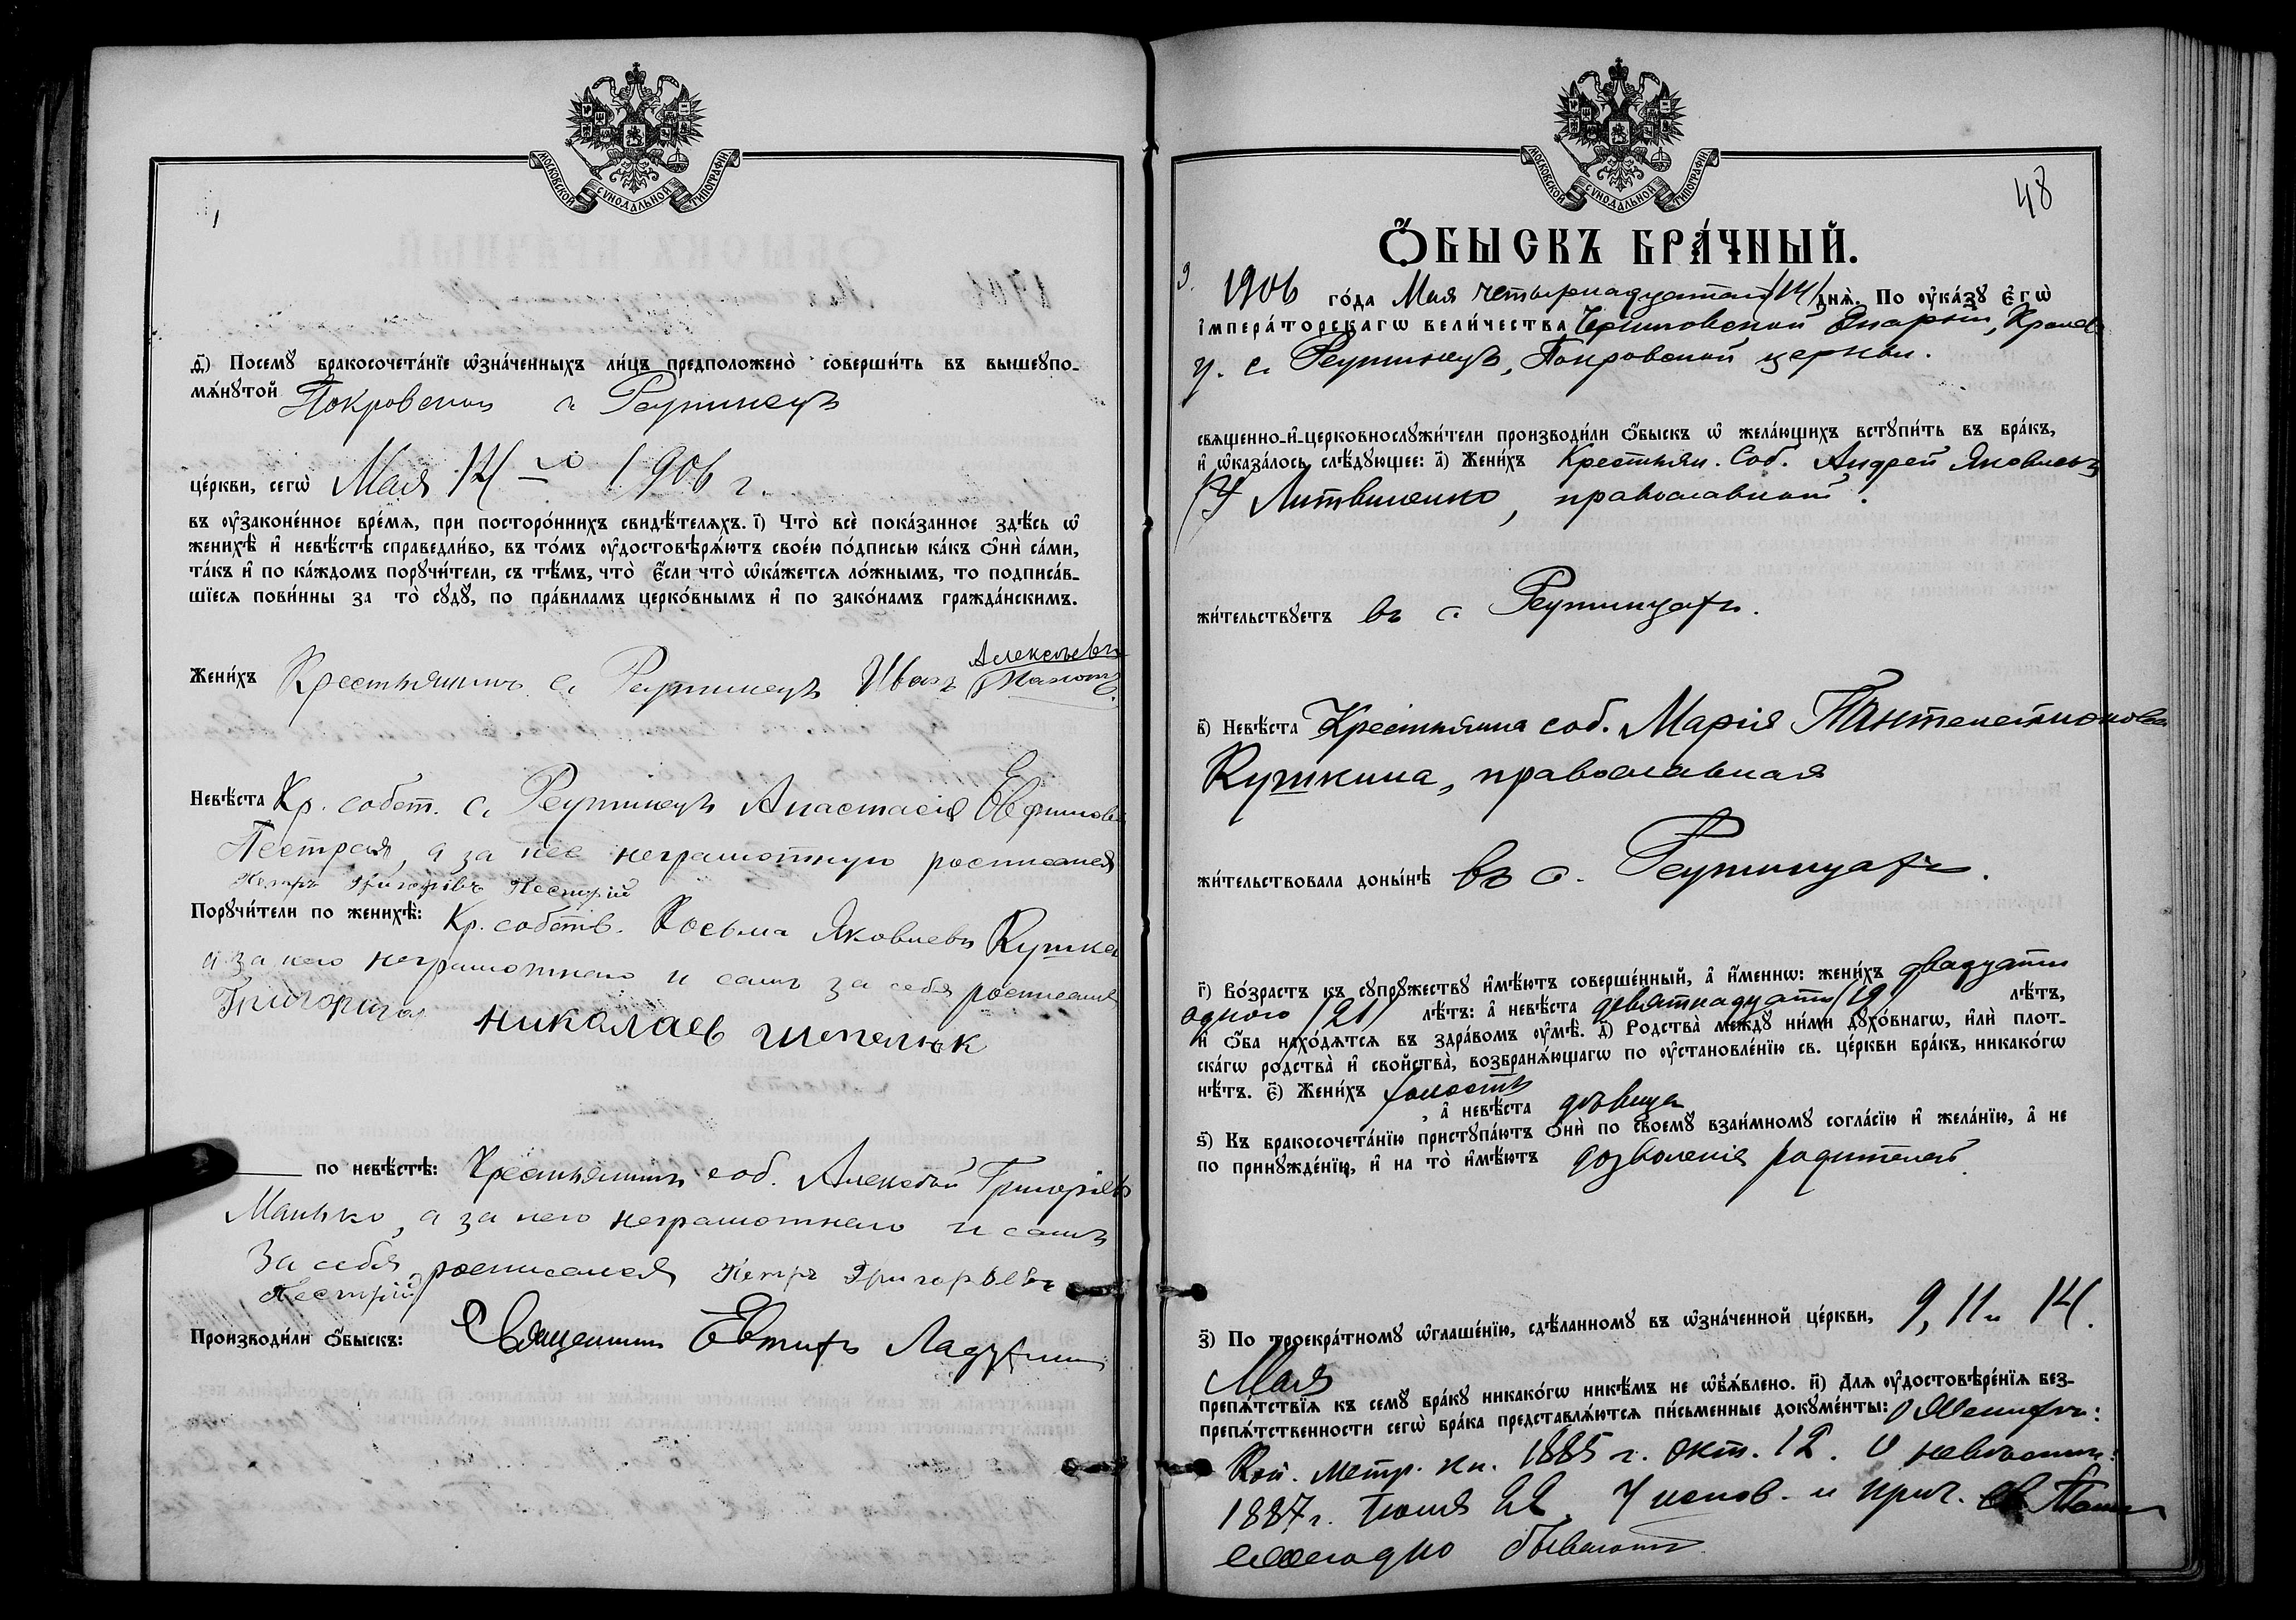 МОСКОВСКОЙ СѴНОДАЛЬНОЙ ТИПОГРАФІИ
д҃) Посемꙋ̀ бракосочета́нїе ѡ҆зна́ченныхъ ли́цъ предположено̀ соверши́ть въ вышеꙋпо-
мѧ́нꙋтой Покровской с. Реутинецъ
це́ркви, сегѡ̀ Мая 14-го 1906 г.
въ ᲂу҆законе́нное вре́мѧ, при посторо́ннихъ свидѣ́телѧхъ. і҃) Что̀ всѐ пока́занное здѣ́сь ѡ҆
женихѣ̀ и҆ невѣ́стѣ справедли́во, въ то́мъ ᲂу҆достовѣрѧ́ютъ свое́ю по́дписью ка́къ ѻ҆нѝ са́ми,
та́къ и҆ по ка́ждомъ порꙋчи́тели, съ тѣ́мъ, что̀ є҆́сли что̀ ѡ҆ка́жетсѧ ло́жнымъ, то подписа́в-
шїесѧ пови́нны за то̀ сꙋдꙋ̀, по пра́виламъ церко́внымъ и҆ по зако́намъ гражда́нскимъ.
Алексѣевъ
Жени́хъ Крестьянинъ с. Реутинецъ Иванъ
Невѣ́ста Кр. собст. с. Реутинецъ Анастасія Евфимова
Пестрая, а за нее неграмотную росписался
Петръ Григорівъ Пестрій
Порꙋчи́тели по женихѣ̀: Кр. собств. Косьма Яковлевъ Кутка
а за него неграмотнаго и самъ за себя росписался
Григорій Николаев Шепелюк
по невѣ́стѣ: Крестьянинъ соб. Алексѣй Григоріевъ
Манько, а за него неграмотнаго и самъ
За себя росписался Петръ Григорьевъ
Пестрій
Производи́ли ѻ҆́быскъ: Священникъ Евтихъ
МОСКОВСКОЙ СѴНОДАЛЬНОЙ ТИПОГРАФІИ
48
Ѻ҆́БЫСКЪ БРА́ЧНЫЙ.
9. 1906 го́да Мая четырнадцатаго /14/ днѧ̀. По ᲂу҆ка́зꙋ є҆гѡ̀
і҆мпера́торскагѡ вели́чества Черниговской Епархіи, Кролев.
у. с. Реутинецъ, Покровской церкви.
свѧщенно-и҆-церковнослꙋжи́тели производи́ли ѻ҆́быскъ ѡ҆ жела́ющихъ встꙋпи́ть въ бра́къ,
и҆ ѡ҆каза́лось слѣ́дꙋющее: а҃) Жени́хъ Крестьян. Соб. Андрей Яковлевъ
Литвиненко, православный.
жи́тельствꙋетъ въ с. Реутинцахъ.
в҃) Невѣ́ста Крестьянка соб. Марія Пантелеимонова
Куткина, православная
жи́тельствовала доны́нѣ въ с. Реутинцахъ.
г҃) Во́зрастъ къ сꙋпрꙋ́жествꙋ и҆мѣ́ютъ соверше́нный, а҆ и҆́менно: жени́хъ двадцати
одного /21/ лѣ́тъ: а҆ невѣ́ста девятнадцати /19/ лѣ́тъ,
и҆ ѻ҆́ба нахо́дѧтсѧ въ здра́вомъ ᲂу҆мѣ̀. д҃) Родства̀ междꙋ̀ ни́ми дꙋхо́внагѡ, и҆лѝ плот-
ска́гѡ родства̀ и҆ свойства̀, возбранѧ́ющагѡ по ᲂу҆становле́нїю св. це́ркви бра́къ, никако́гѡ
нѣ́тъ. є҃) Жени́хъ холостъ, а҆ невѣ́ста дѣвица
ѕ҃) Къ бракосочета́нїю пристꙋпа́ютъ ѻ҆нѝ по своемꙋ̀ взаи́мномꙋ согла́сїю и҆ жела́нїю, а҆ не
по принꙋжде́нїю, и҆ на то̀ и҆мѣ́ютъ дозволенія родителей.
з҃) По троекра́тномꙋ ѡ҆глаше́нїю, сдѣ́ланномꙋ въ ѡ҆зна́ченной це́ркви, 9, 11 и 14.
Мая
препѧ́тствїѧ къ семꙋ̀ бра́кꙋ никако́гѡ никѣ́мъ не ѡ҆б̾ѧ́влено. и҃) Длѧ ᲂу҆достовѣре́нїѧ без-
препѧ́тственности сегѡ̀ бра́ка представлѧ́ютсѧ пи́сьменные докꙋме́нты: О женихѣ:
Коп. метр. кн. 1885 г. окт. 12. О невѣстѣ:
1887 г. Іюля 22 У испов. и прич. св. Таинъ
ежегодно бываютъ